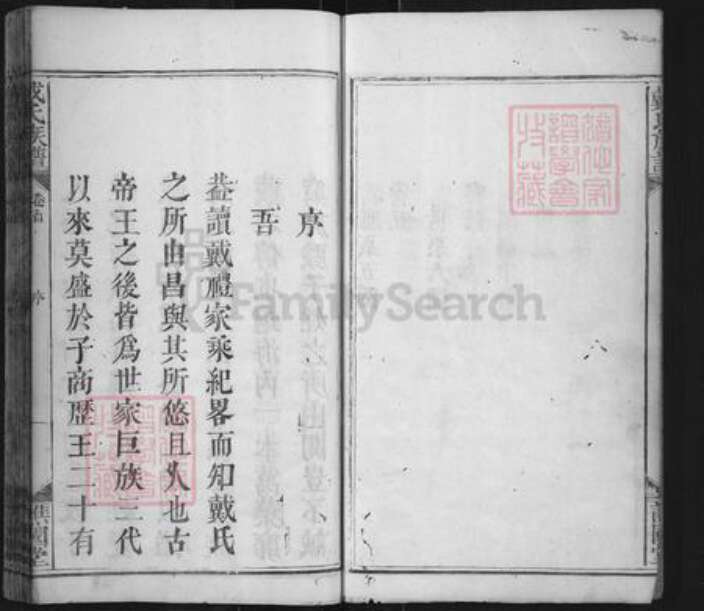 序
吾
葢讀戴禮家乘紀畧而知戴氏
之所由昌與其所悠且久也古
帝王之後皆爲世家巨族三代
以來莫盛於子商歷王二十有
戴氏族譜
卷首
序
一
譙國堂
FamilySearch